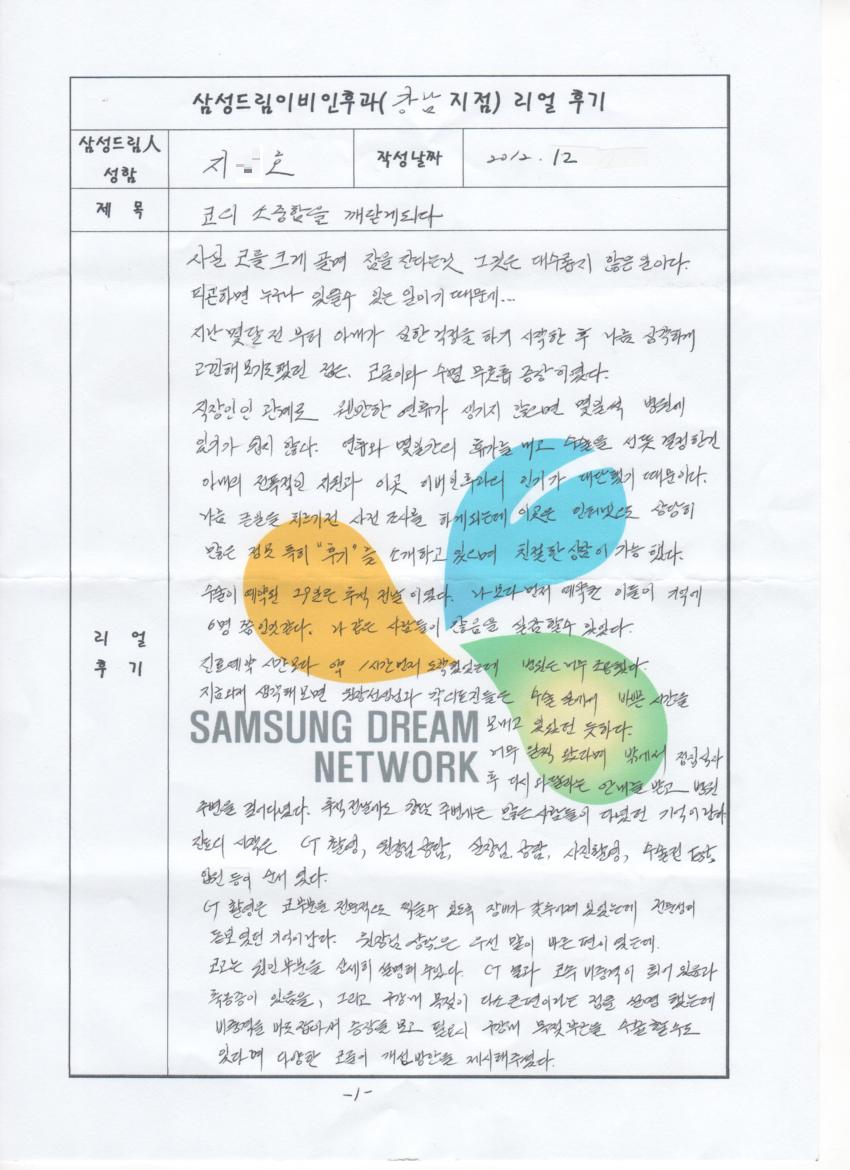 삼성드림이비인후과(강남 지점) 리얼 후기
삼성드림人 성함
지 호
작성날짜
2012. 12
제 목
코의 소중함을 깨닫게되다
리 얼
후 기
사실 코를 크게 골며 잠을 잔다는것 그것은 대수롭지 않은 일이다.
피곤하면 누구나 있을수 있는 일이기 때문에...
지난 몇달 전 부터 아내가 심한 걱정을 하기 시작한 후 나름 심각하게
고민해 보기도했던 점은, 코골이와 수면 무호흡 증상 이였다.
직장인인 관계로 웬만한 연휴가 생기지 않으면 몇일씩 병원에
있기가 쉽지 않다. 연휴와 몇일간의 휴가를 내고 수술을 선뜻 결정한건
아내의 전폭적인 지원과 이곳 이비인후과의 인기가 대단했기 때문이다.
나름 큰일을 치르기전 사전 조사를 하게되는데 이곳은 인터넷으로 상당히
많은 정보 특히 "후기"를 소개하고 있으며 친절한 상담이 가능했다.
수술이 예약된 29일은 추석 전날 이였다. 나보다 먼저 예약한 이들이 기억에
6명 쯤인것같다. 나 같은 사람들이 많음을 실감할수 있었다.
진료예약 시간보다 약 1시간먼저 도착했었는데 병원은 너무 조용했다.
지금와서 생각해보면 원장선생님과 각 의료진들은 수술 실에서 바쁜 시간을
보내고 있었던 듯하다.
SAMSUNG DREAM
NETWORK
너무 일찍 왔다며 밖에서 점심식사
후 다시 와달라는 안내를 받고 병원
주변을 걸어다녔다. 추석 전날에도 강남 주변에는 많은 사람들이 다녔던 기억이 난다
진료의 시작은 CT 촬영, 원장님 상담, 실장님 상담, 사진촬영, 수술전
입원 등의 순서 였다.
CT 촬영은 코부분을 전문적으로 찍을수 있도록 장비가 갖추어져 있었는데 전문성이
돋보였던 기억이난다. 원장님 상담은 우선 말이 빠른 편이 였는데,
코고는 원인 부분을 상세히 설명해 주었다. CT 결과 코속 비중격이 휘어 있음과
축농증이 있음을, 그리고 구강내 목젖이 다소 큰편이라는 점을 설명 했는데
비중격을 바로 잡아서 증상을 보고 필요시 구강내 목젖 부근을 수술할 수도
있다며 다양한 코골이 개선방안을 제시해주셨다.
-1-